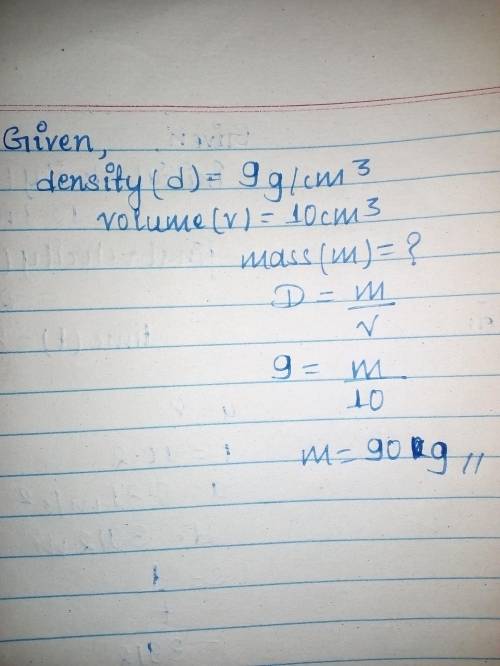 Given,
density(d) = 9g/cm³
volume(v) = 10cm³
mass(m) = ?
D = m/v
9 = m/10
m = 90 g //